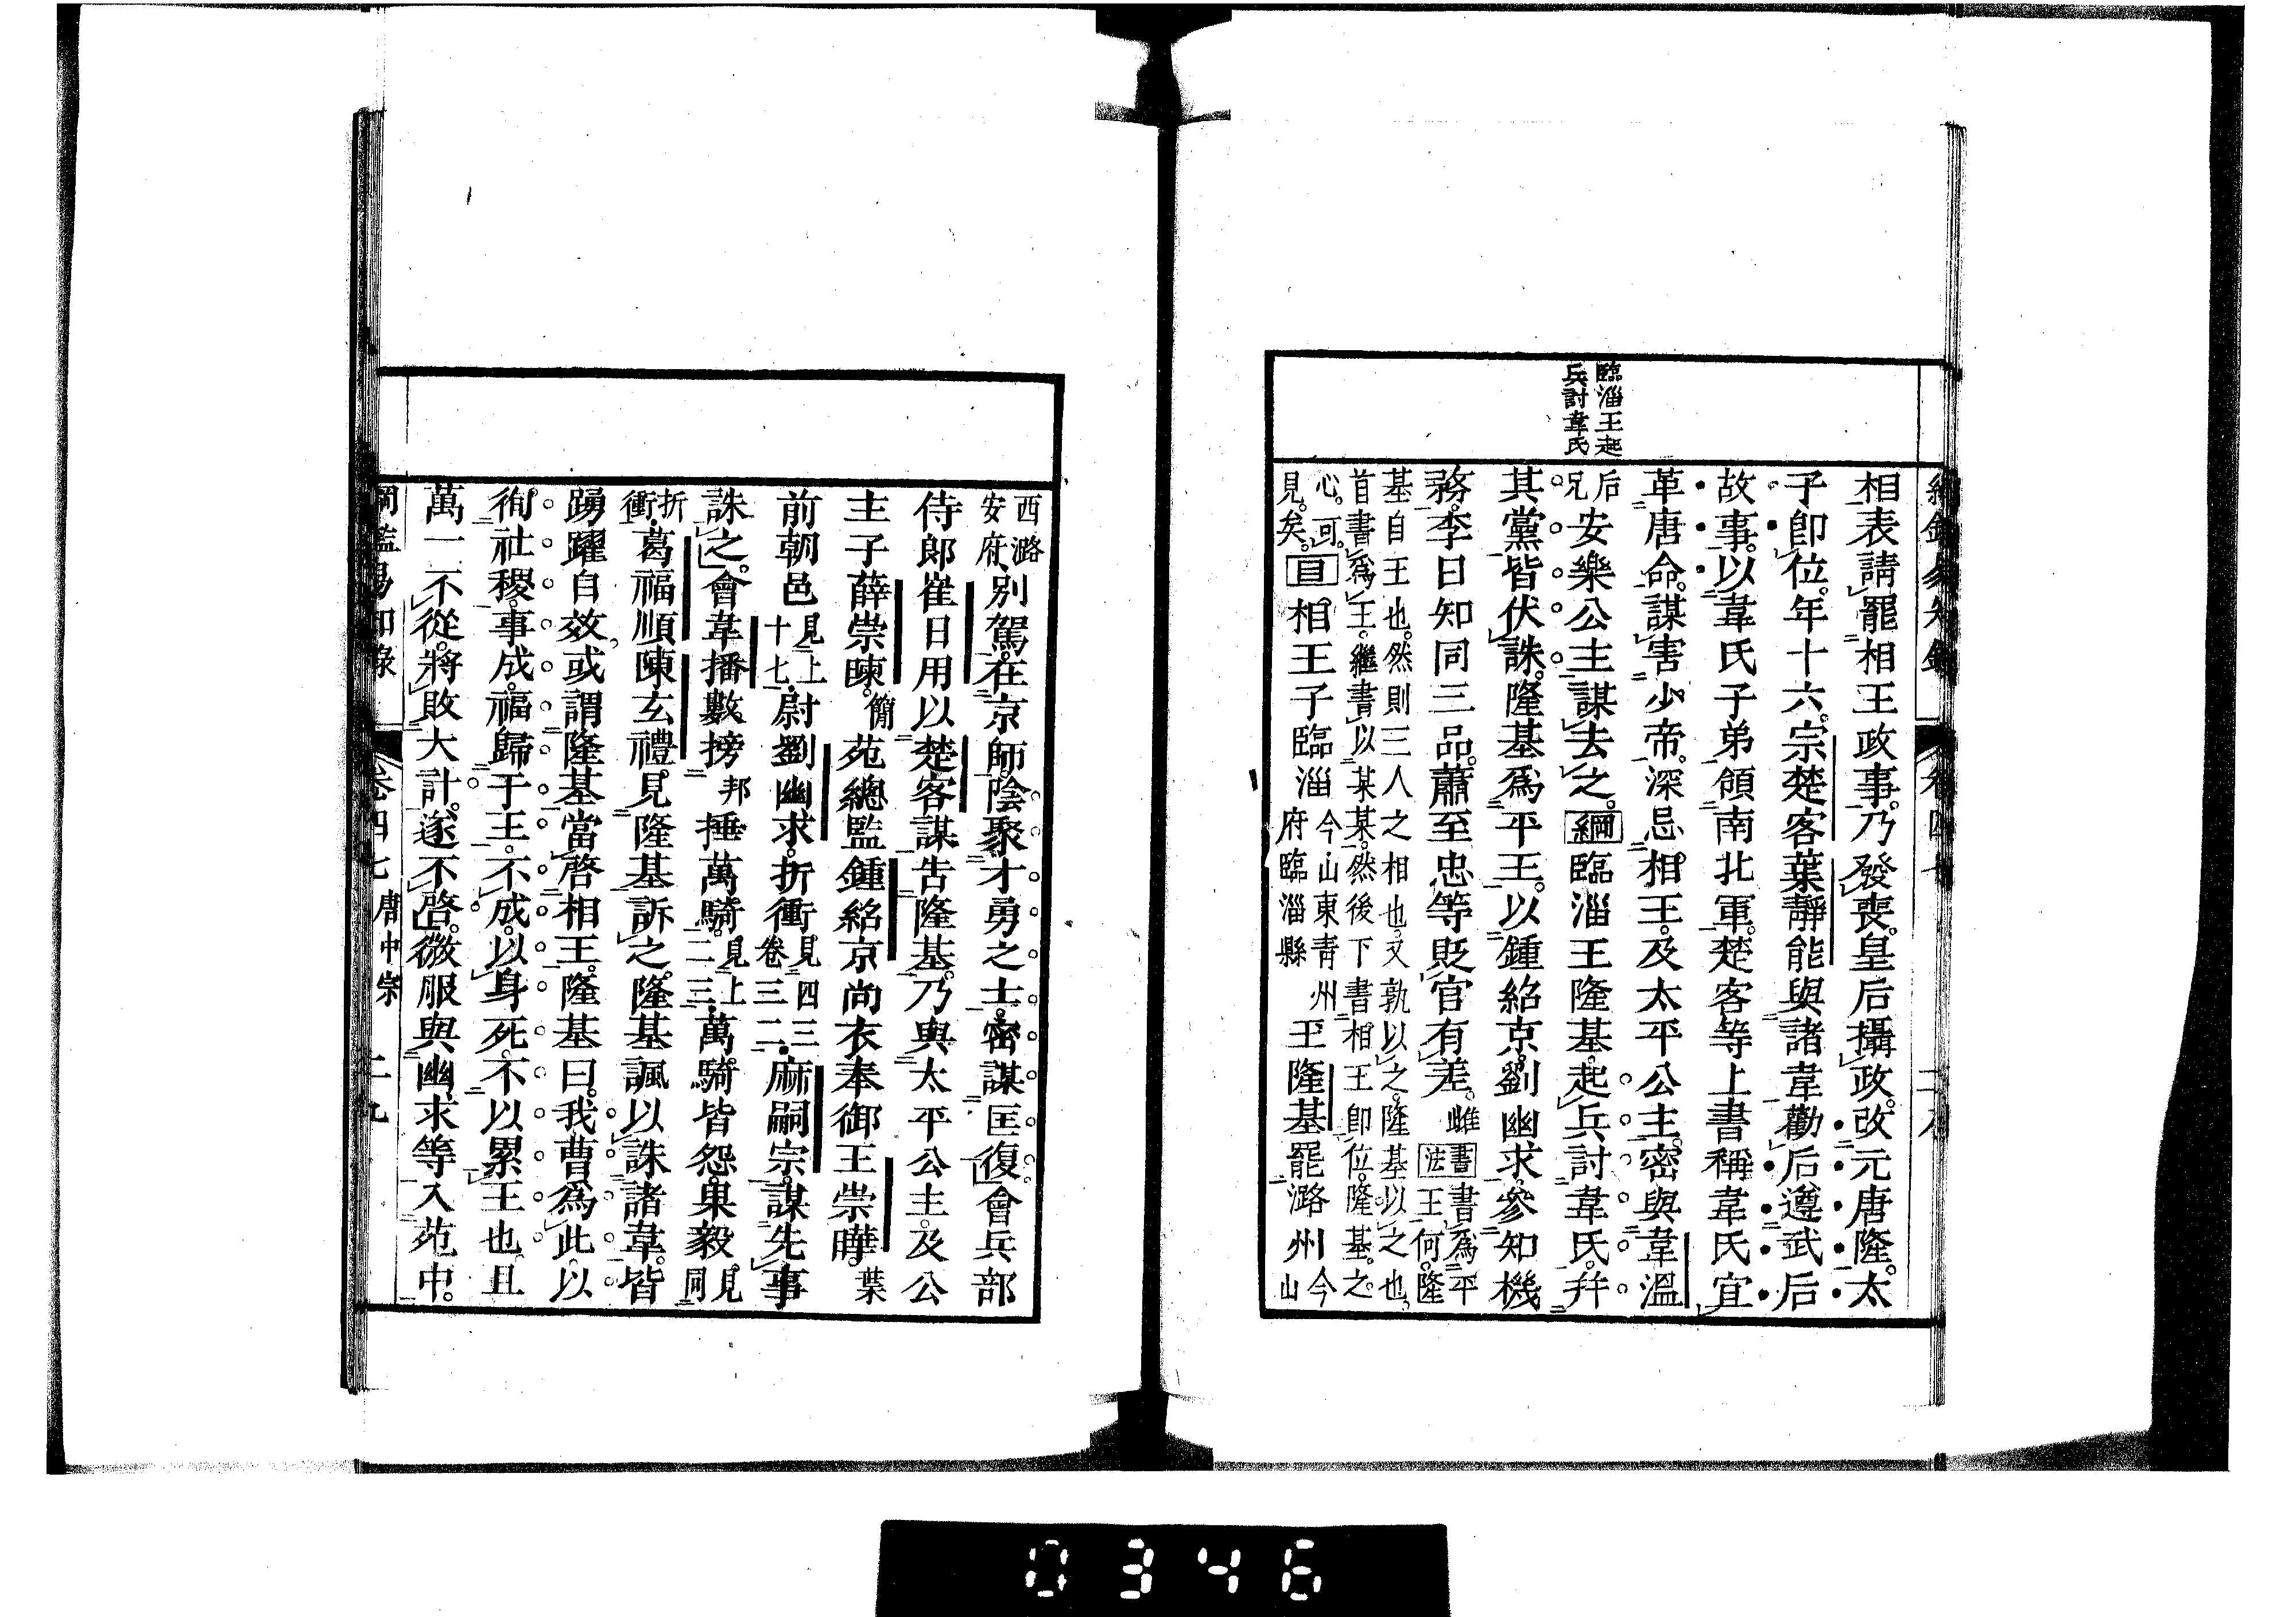 臨淄王起
兵討韋氏
相表請罷相王政事。乃發喪。皇后攝政。改元唐隆。太
子卽位。年十六。宗楚客葉靜能與諸韋勸后遵武后
故事。以韋氏子弟領南北軍。楚客等上書稱韋氏宜
革唐命。謀害少帝。深忌相王。及太平公主。密與韋溫
后兄安樂公主謀去之。綱臨淄王隆基起兵討韋氏。幷
其黨皆伏誅。隆基爲平王。以鍾紹京劉幽求參知機
務。李日知同三品。蕭至忠等貶官有差。雌書法書爲平王何。隆
基自王也。然則三人之相也。又孰以之。隆基以之也。
首書爲王。繼書以某某。然後下書相王卽位。隆基之
心。可見矣。目相王子臨淄今山東青州府臨淄縣王隆基罷潞州今山
西潞安府別駕。在京師。陰聚才勇之士。密謀匡復。會兵部
侍郎崔日用以楚客謀告隆基。乃與太平公主。及公
主子薛崇暕。簡苑總監鍾紹京尚衣奉御王崇曄。葉
前朝邑見上十七尉劉幽求。折衝見四三卷三二麻嗣宗。謀先事
誅之。會韋播數搒邦捶萬騎。見上二三萬騎皆怨。果毅。見同
折衝葛福順陳玄禮。見隆基訴之。隆基諷以誅諸韋。皆
踴躍自效。或謂隆基當啓相王。隆基曰。我曹爲此。以
徇社稷。事成。福歸于王。不成。以身死。不以累王也。且
萬一不從。將敗大計。遂不啓。微服與幽求等入苑中。
綱鑑易知錄 卷四七 唐中宗 二九
0346